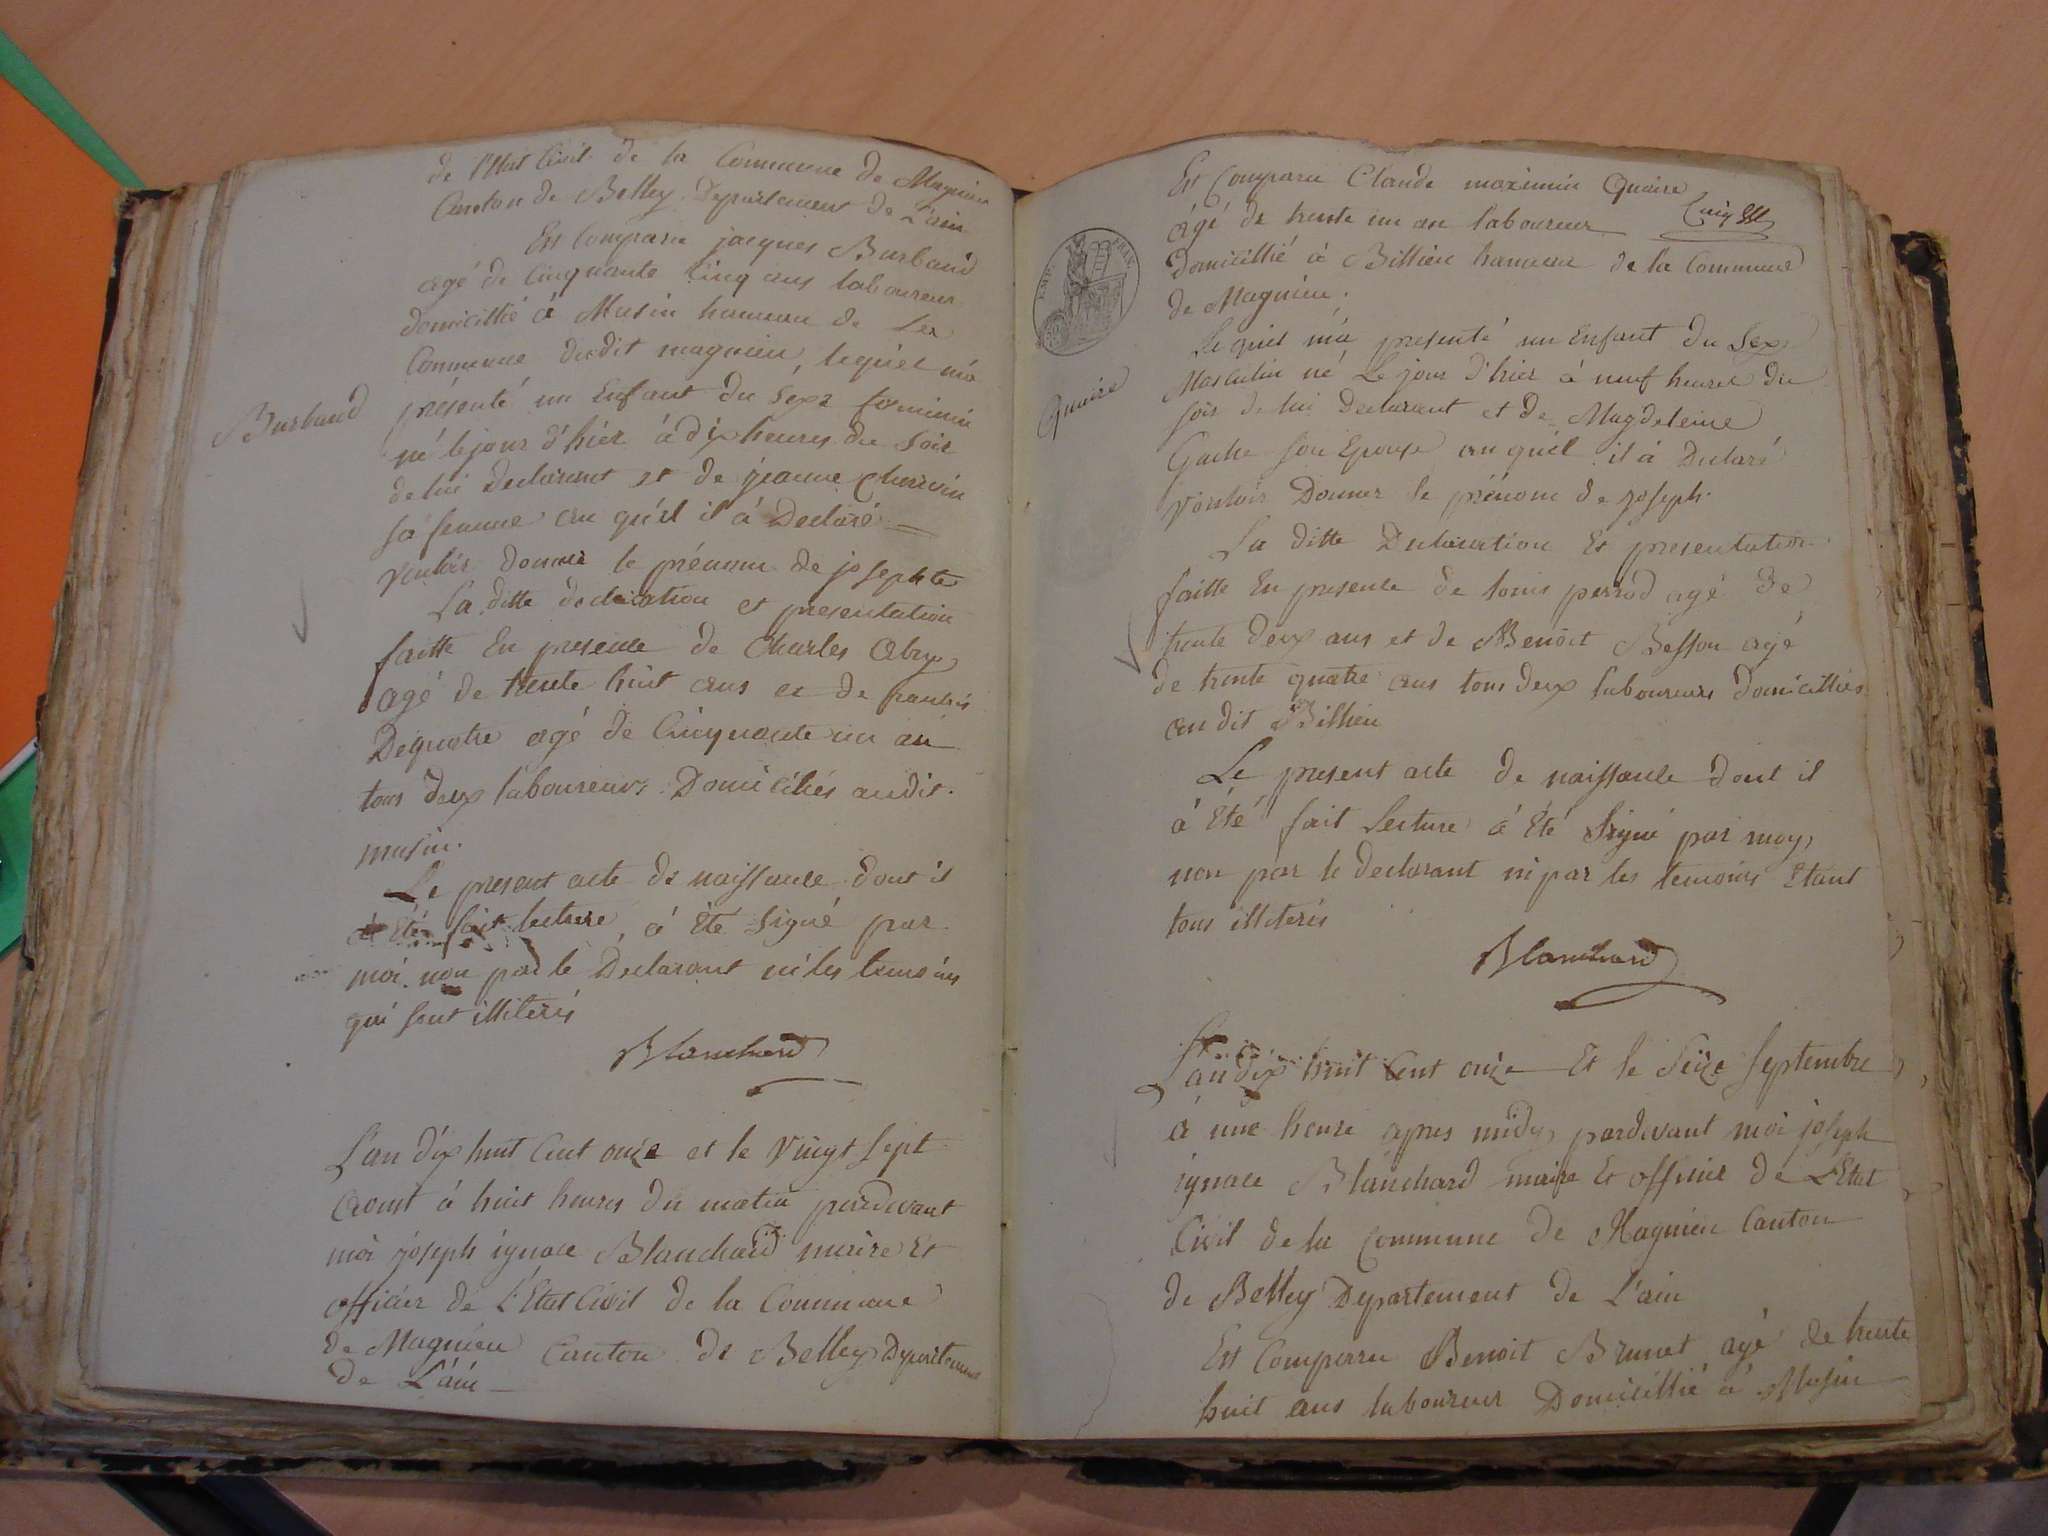 de l'Etat Civil de la Commune de Magnieu
Canton de Belley Departement de L'ain
Est Comparu jacques Burbaud
agé de Cinquante Cinq ans laboureur
domicillié à Musin hameau de La
Commune dudit magnieu, lequel m'a
Burbaud
présenté un Enfant du Sexe feminin
né le jour d'hier à dix heures du Soir
de lui Declarant et de jeanne
sa femme au quél il à Declaré
vouloir donner le prénom de josephte
La ditte declaration et presentation
faitte En presence de Charles
agé de trente huit ans et de
Dequatre agé de Cinquante un an
tous deux laboureurs Domiciliés audit
musin.
Le present acte de naissance dont il
a Eté fait lecture, à été signé par
moi non par le Declarant ni les temoins
qui sont illiterés
Blanchard
L'an dix huit Cent onze et le vingt sept
aoust à huit heures du matin pardevant
moi joseph ignace Blanchard maire Et
officier de L'Etat Civil de la Commune
de Magnieu Canton de Belley Departement
de L'ain
EMP. FRAN.
Est Comparu Claude maximin Quaire
agé de trente un an laboureur
domicillié à Billieu hameau de la Commune
de Magnieu.
Quaire
Le quel m'a presenté un Enfant du Sexe
Masculin né Le jour d'hier à neuf heures du
soir de lui Declarant et de Magdeleine
Gache son Epouse au quél il à Declaré
vouloir Donner le prénom de joseph.
La ditte Declaration Et presentation
faitte En presence de louis perrod agé de
trente deux ans et de Benoit Besson agé
de trente quatre ans tous deux laboureurs domicilliés
au dit Billieu
Le present acte de naissance dont il
à Eté fait Lecture à Eté Signé par moy,
non par le declarant ni par les temoins Etant
tous illiterés
Blanchard
L'an dix huit Cent onze Et le Seize Septembre
à une heure apres midy pardevant moi joseph
ignace Blanchard maire Et officier de L'Etat
Civil de la commune de Magnieu Canton
de Belley Departement de L'ain
Est Comparu Benoit Brunet agé de trente
huit ans laboureur Domicillié à Musin